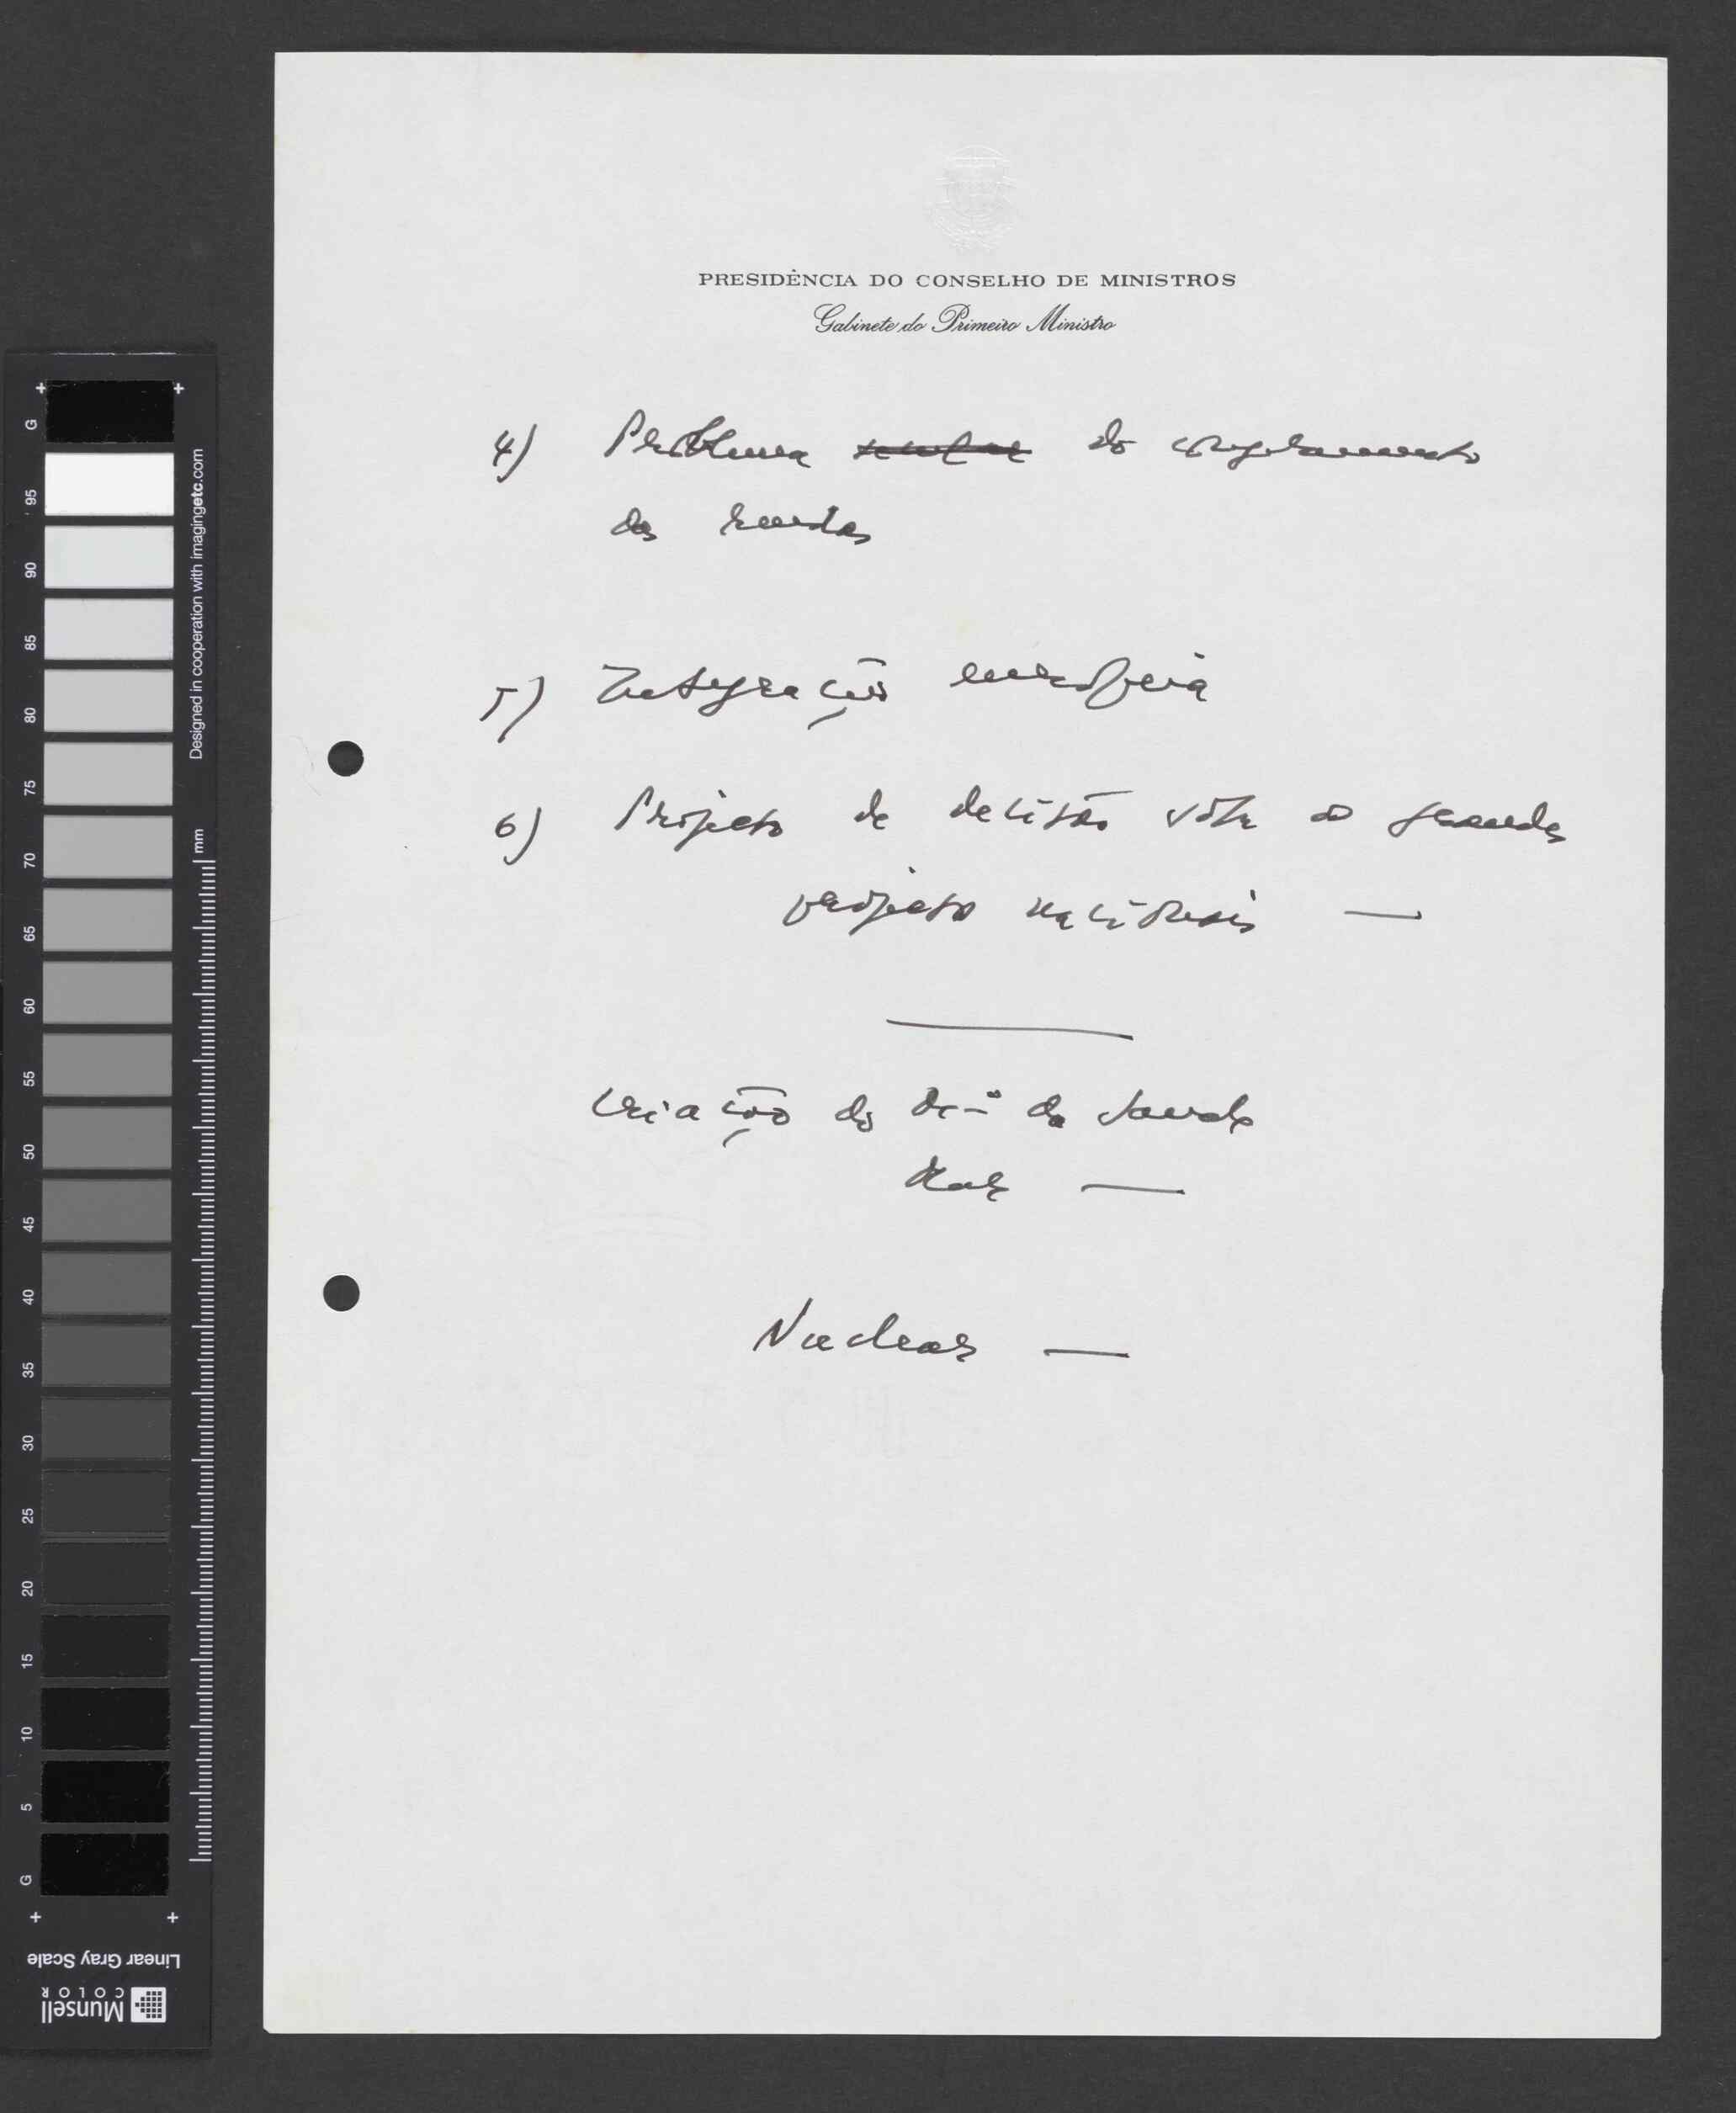 PRESIDÊNCIA DO CONSELHO DE MINISTROS
Gabinete do Primeiro Ministro
4) Problema do congelamento
das rendas
5) Integração europeia
6) Projecto de decisão sobre os grandes
projectos nacionais —
Criação do da
Mar —
Nuclear —
G 95 90 85 80 75 70 65 60 55 50 45 40 35 30 25 20 15 10 5 G
Designed in cooperation with imagingetc.com
mm
Linear Gray Scale
Munsell
COLOR